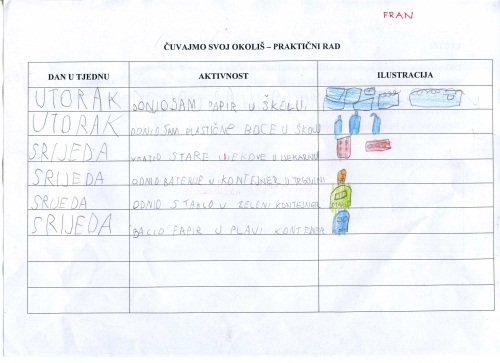 FRAN
ČUVAJMO SVOJ OKOLIŠ – PRAKTIČNI RAD
DAN U TJEDNU AKTIVNOST ILUSTRACIJA
UTORAK DONIO SAM PAPIR U ŠKOLU.
UTORAK DONIO SAM PLASTIČNE BOCE U ŠKOLU
SRIJEDA STARE LIJEKOVE U LJEKARNU
SRIJEDA ODNIO BATERIJE U KONTEJNER U TRGOVINI
SRIJEDA ODNIO STAKLO U ZELENI KONTEJNER
SRIJEDA BACIO PAPIR U PLAVI KONTEJNER